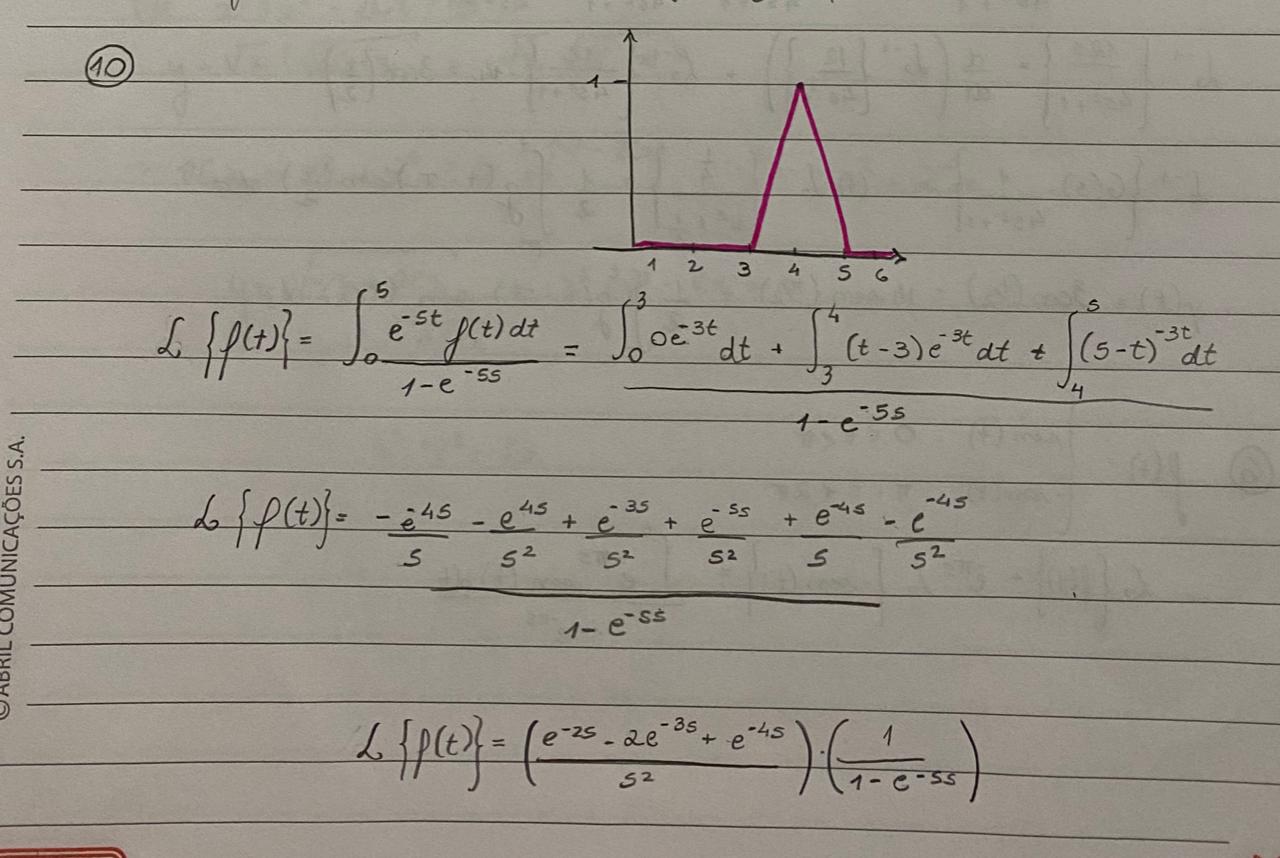 10
1
1 2 3 4 5 6
ℒ{f(t)} = ∫₀⁵ e^{-st} f(t) dt / (1-e^{-5s}) = (∫₀³ 0e^{-3t} dt + ∫₃⁴ (t-3)e^{-3t} dt + ∫₄⁵ (5-t)^{-3t} dt) / (1-e^{-5s})
ℒ{f(t)} = (-e^{-4s}/s - e^{4s}/s² + e^{-3s}/s² + e^{-5s}/s² + e^{-4s}/s - e^{-4s}/s²) / (1-e^{-5s})
ℒ{f(t)} = ((e^{-2s} - 2e^{-3s} + e^{-4s})/s²)·(1/(1-e^{-5s}))
©ABRIL COMUNICAÇÕES S.A.